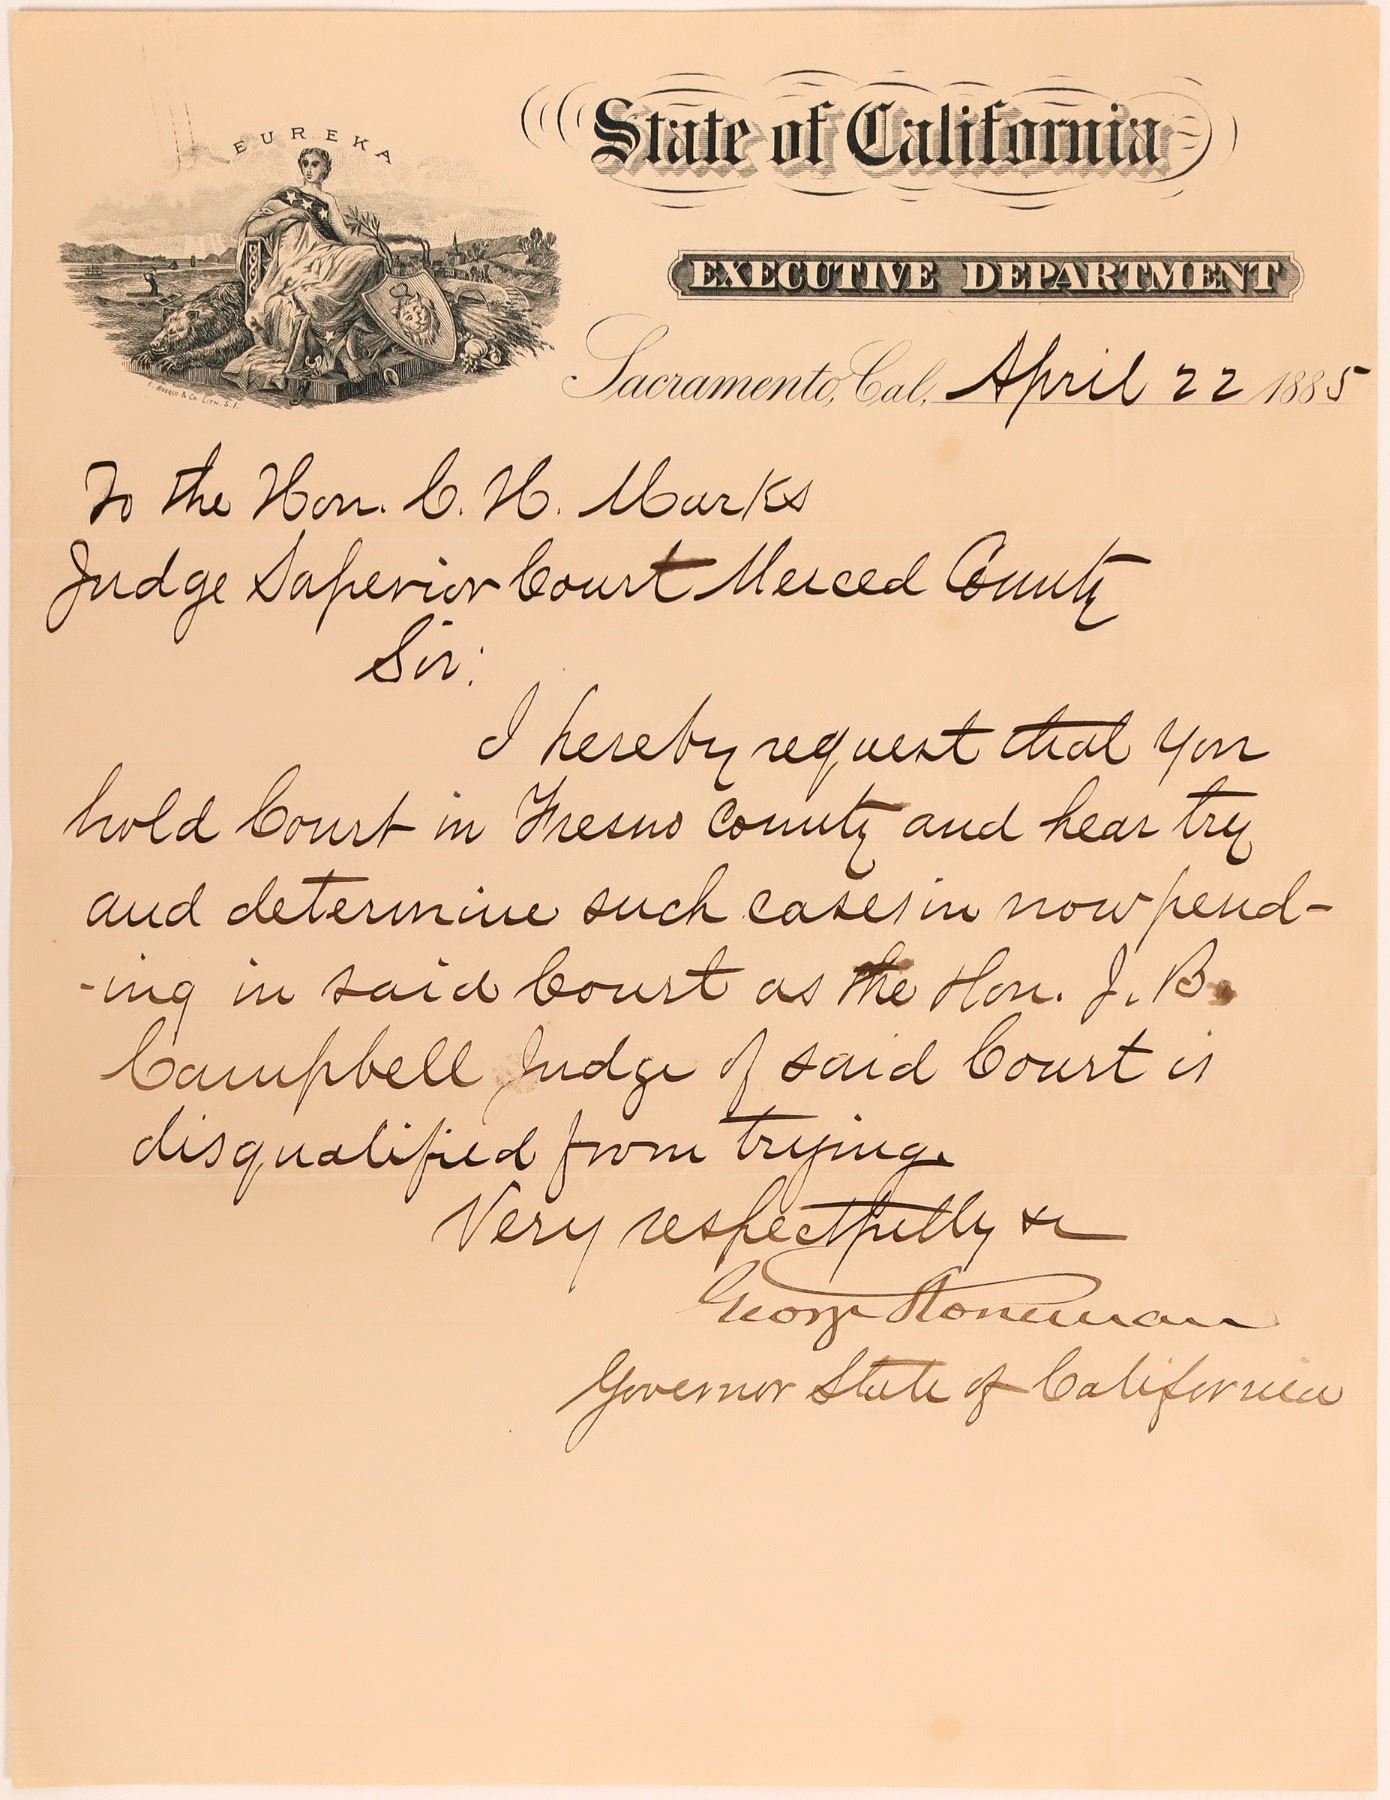 EUREKA
State of California
EXECUTIVE DEPARTMENT
Sacramento, Cal, April 22 1885
E. Bosqui & Co. Lith. S.F.
To the Hon. C. H. Marks
Judge Superior Court Merced County
Sir:
I hereby request that you
hold Court in Fresno County and hear try
and determine such cases in now pend-
-ing in said Court as the Hon. J. B.
Campbell Judge of said Court is
disqualified from trying.
Very respectfully &c
George Stoneman
Governor State of California